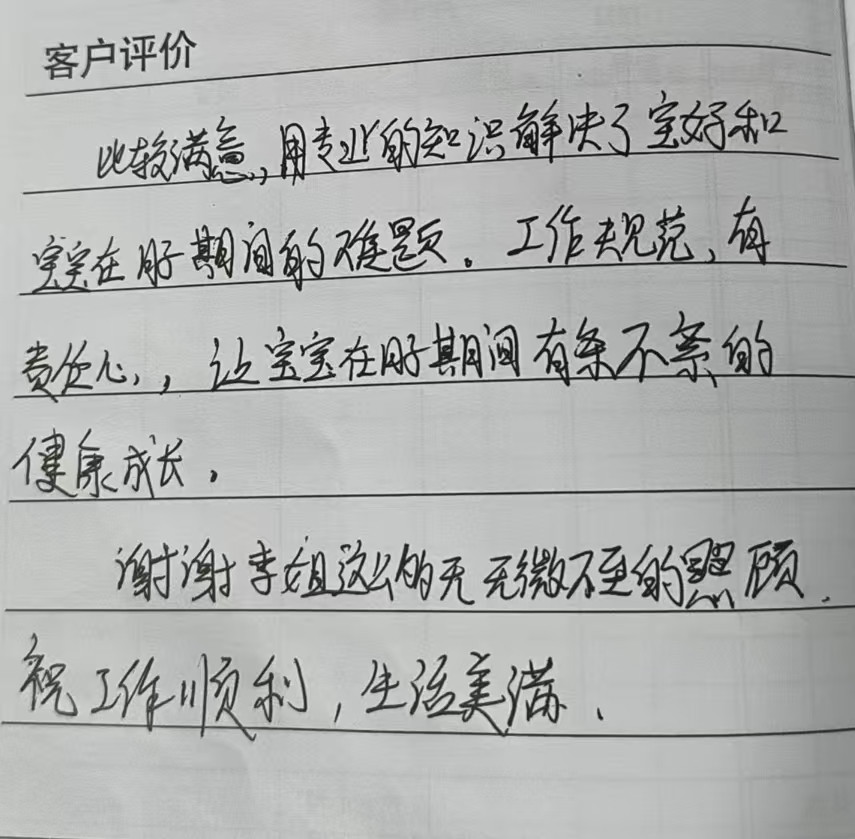 客户评价
比较满意,用专业的知识解决了宝妈和
宝宝在月子期间的难题。工作规范、有
责任心,,让宝宝在月子期间有条不紊的
健康成长。
谢谢李姐这么的无微不至的照顾.
祝工作顺利,生活美满、